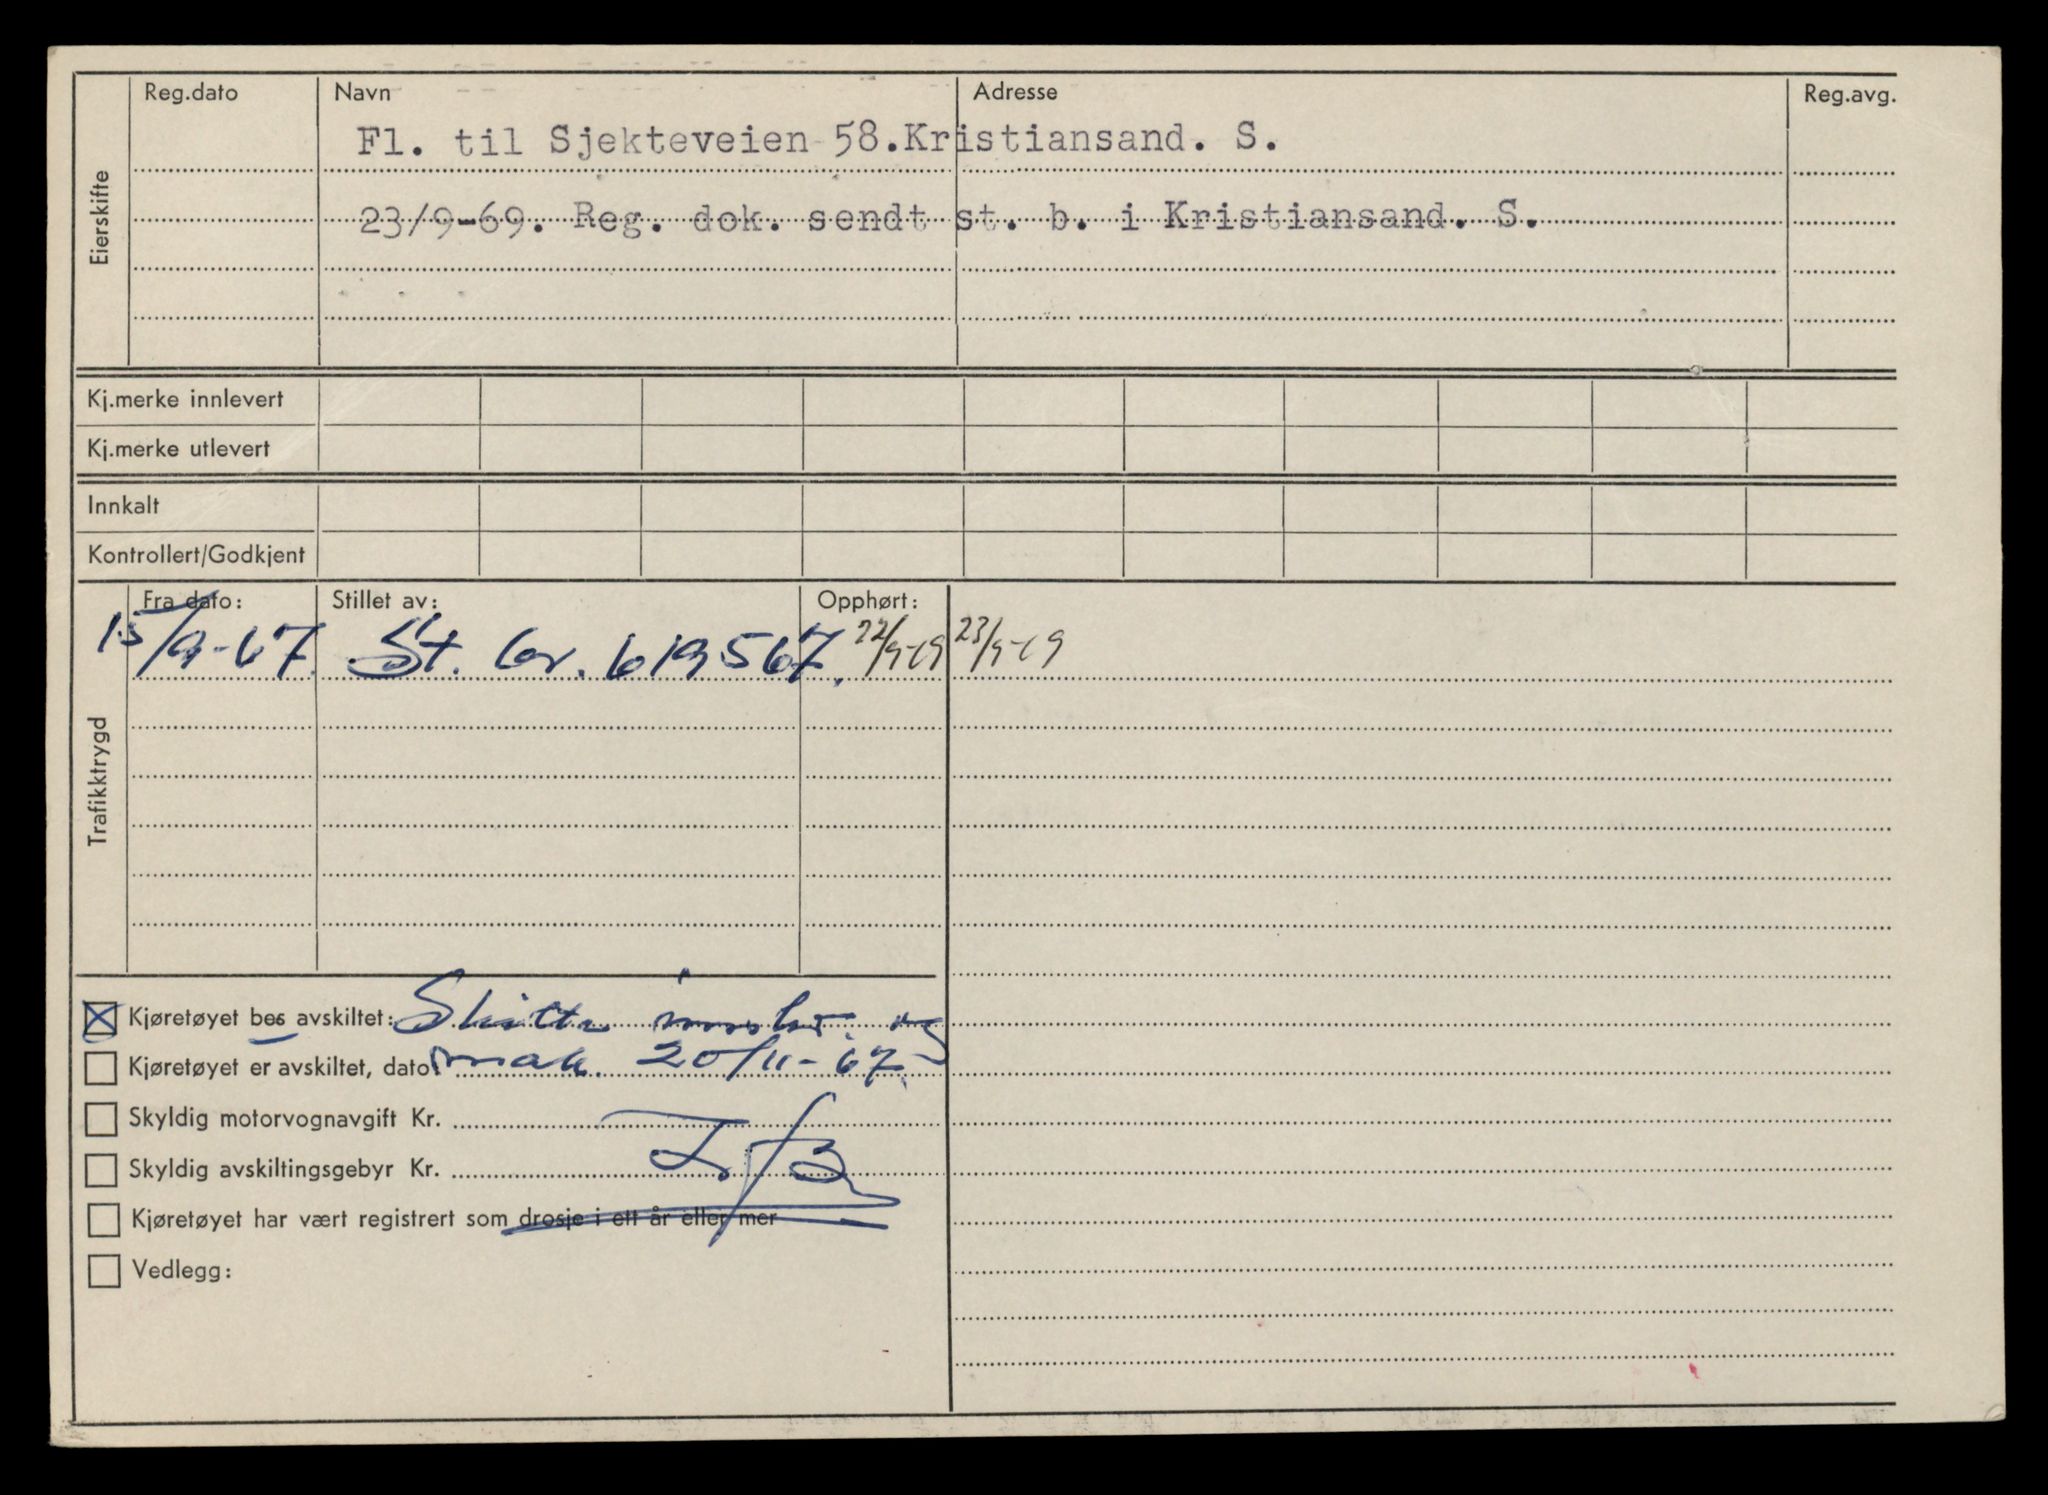 Reg.dato Navn Adresse Reg.avg.
Eierskifte
Fl. til Sjekteveien 58.Kristiansand. S.
23/9-69. Reg. dok. sendt st. b. i Kristiansand. S.
Kj.merke innlevert
Kj.merke utlevert
Innkalt
Kontrollert/Godkjent
Trafikktrygd
Fra dato: Stillet av: Opphørt:
15/9-67. St. br. 619567. 22/9-69 23/9-69
Kjøretøyet bes avskiltet: og
Kjøretøyet er avskiltet, dato: 20/11-67.
Skyldig motorvognavgift Kr.
Skyldig avskiltingsgebyr Kr.
Kjøretøyet har vært registrert som drosje i ett år eller mer
Vedlegg: